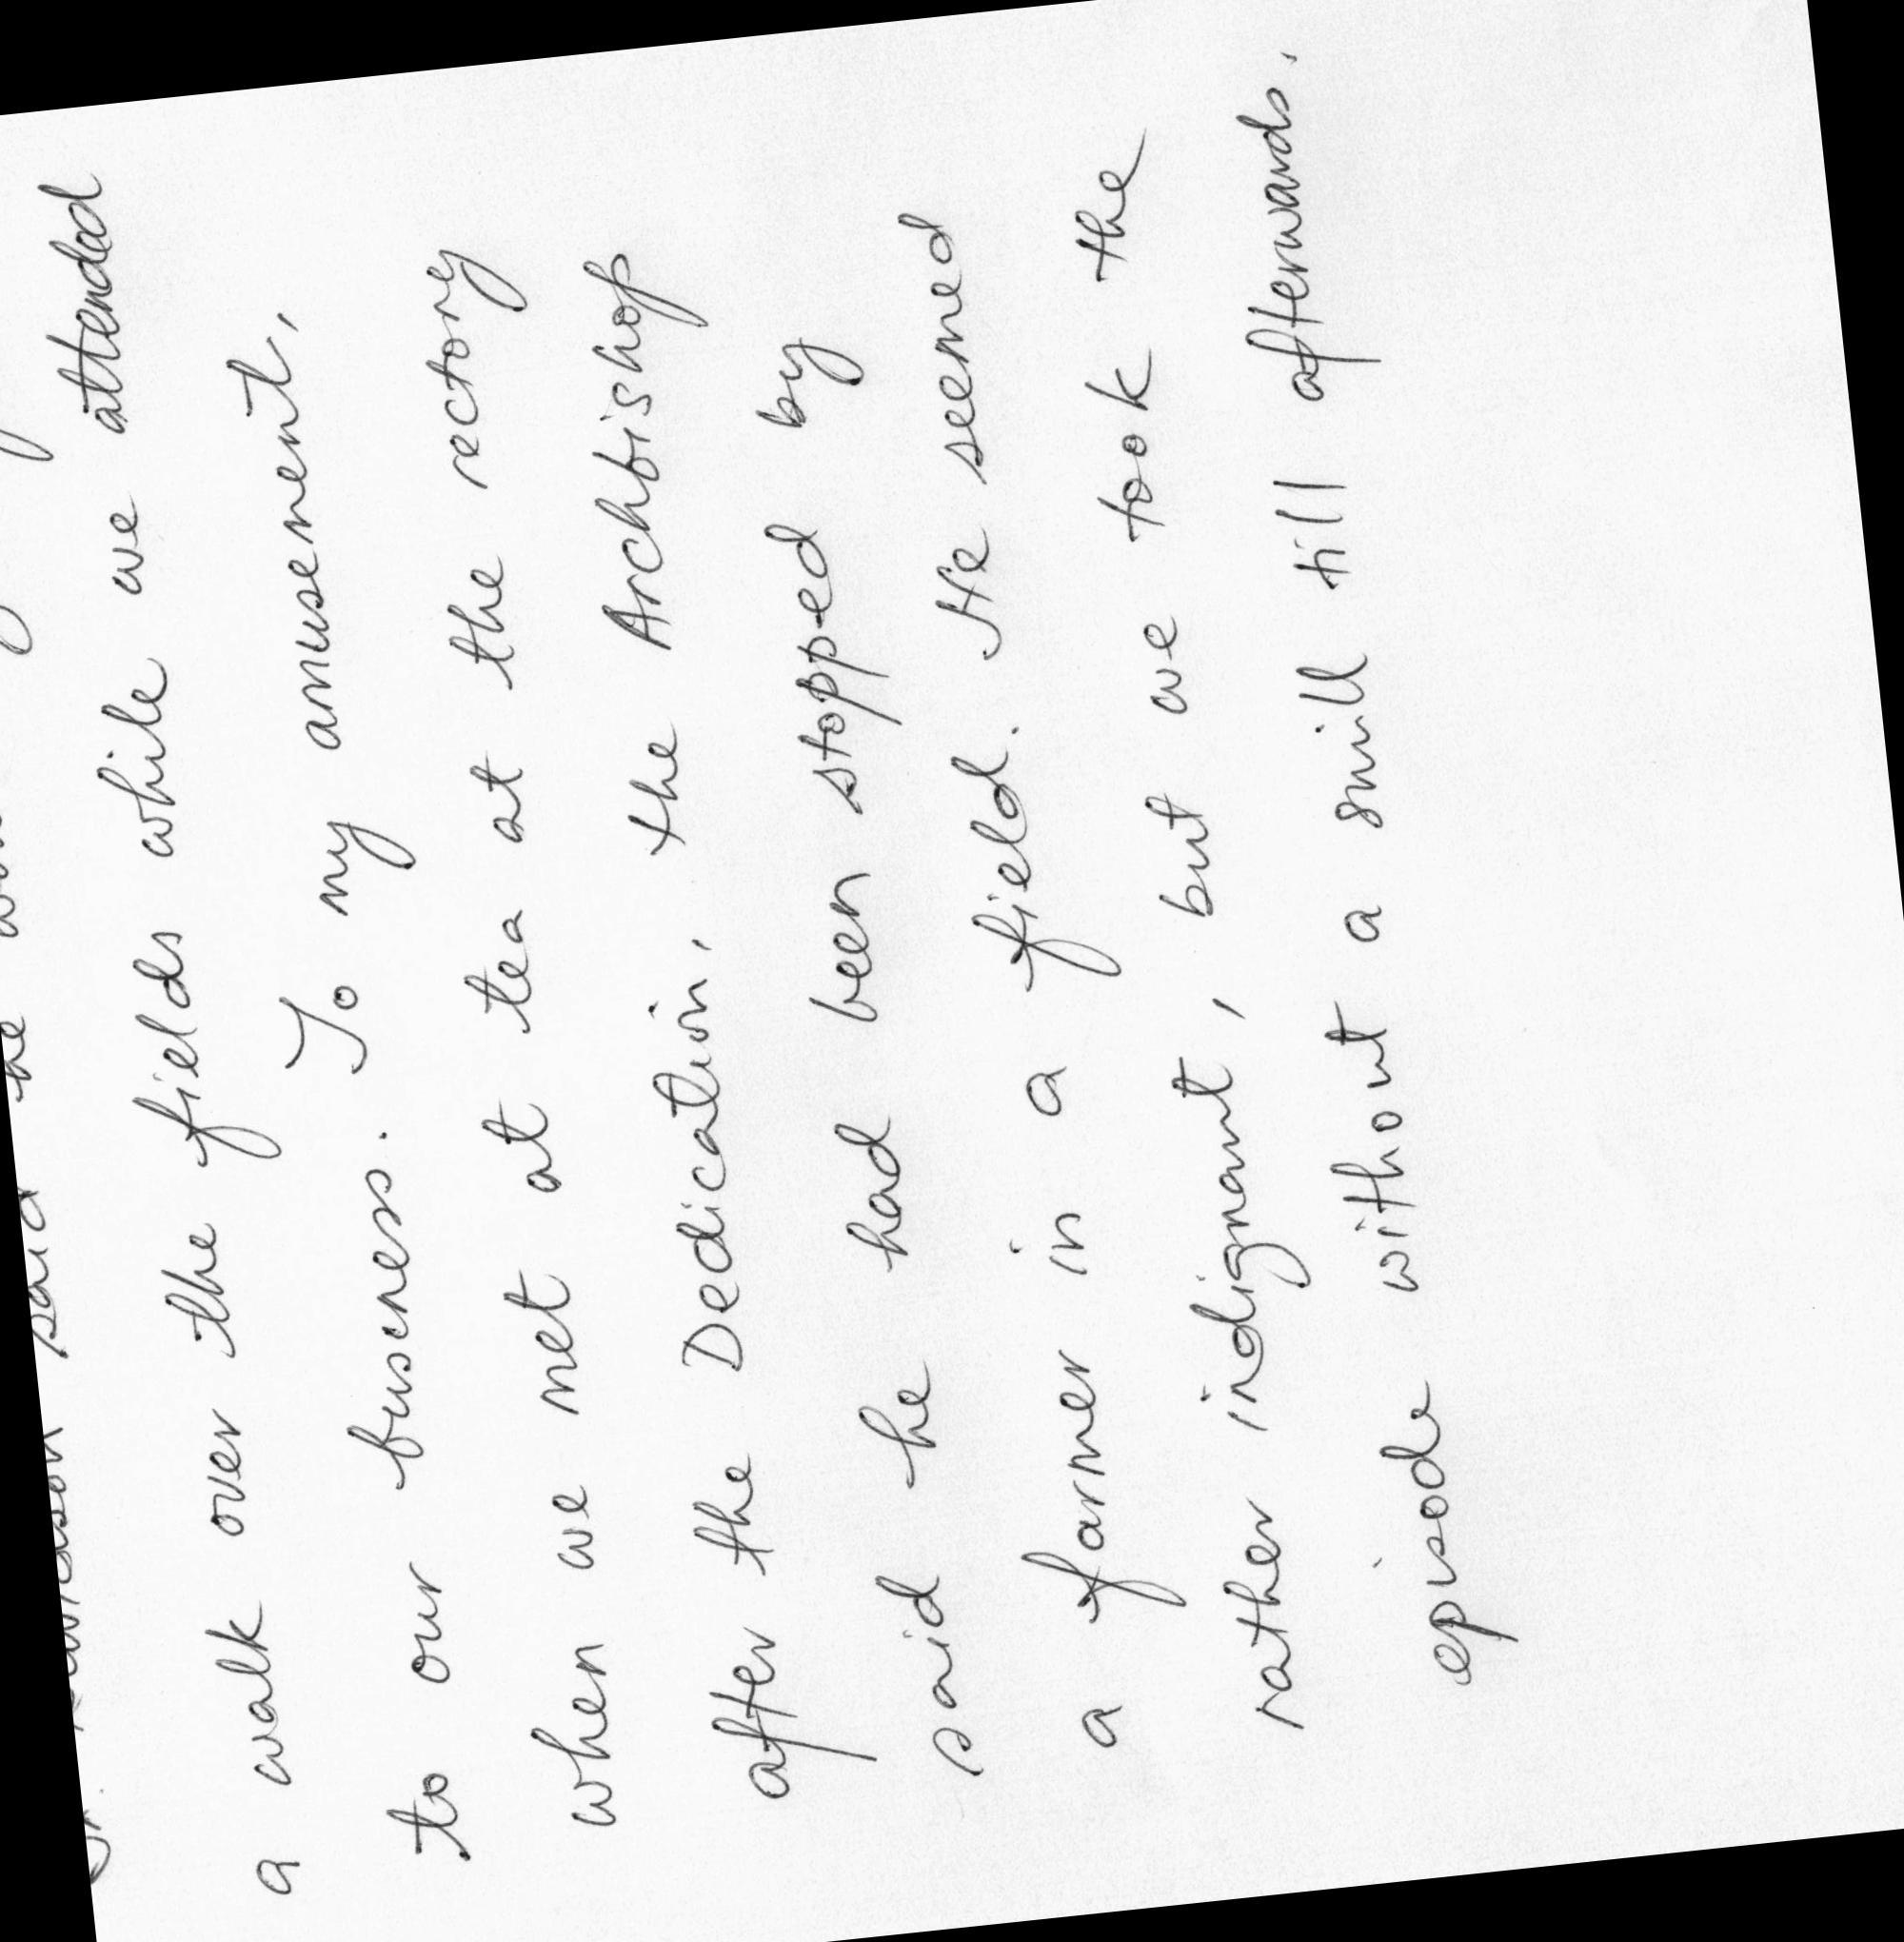 said he
a walk over the fields while we attended
to our business. To my amusement,
when we met at tea at the rectory
after the Dedication, the Archbishop
said he had been stopped by
a farmer in a field. He seemed
rather indignant, but we took the
episode without a smill till afterwards.